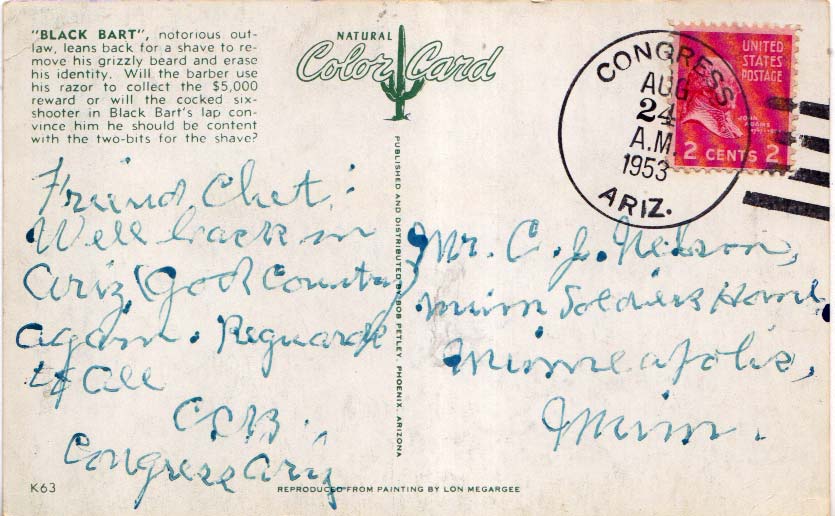 "BLACK BART", notorious out-
law, leans back for a shave to re-
move his grizzly beard and erase
his identity. Will the barber use
his razor to collect the $5,000
reward or will the cocked six-
shooter in Black Bart's lap con-
vince him he should be content
with the two-bits for the shave?
NATURAL
Color Card
CONGRESS
AUG
24
A.M.
1953
ARIZ.
UNITED
STATES
POSTAGE
JOHN
ADAMS
2 CENTS 2
Friend Chet:
Well back in
Ariz, (God Country)
again. Reguards
to All
CCB.
Congress Ariz
PUBLISHED AND DISTRIBUTED BY BOB PETLEY, PHOENIX, ARIZONA
Mr. C. J. Nelson,
Minn Soldiers Home,
Minneapolis,
Minn.
K63
REPRODUCED FROM PAINTING BY LON MEGARGEE